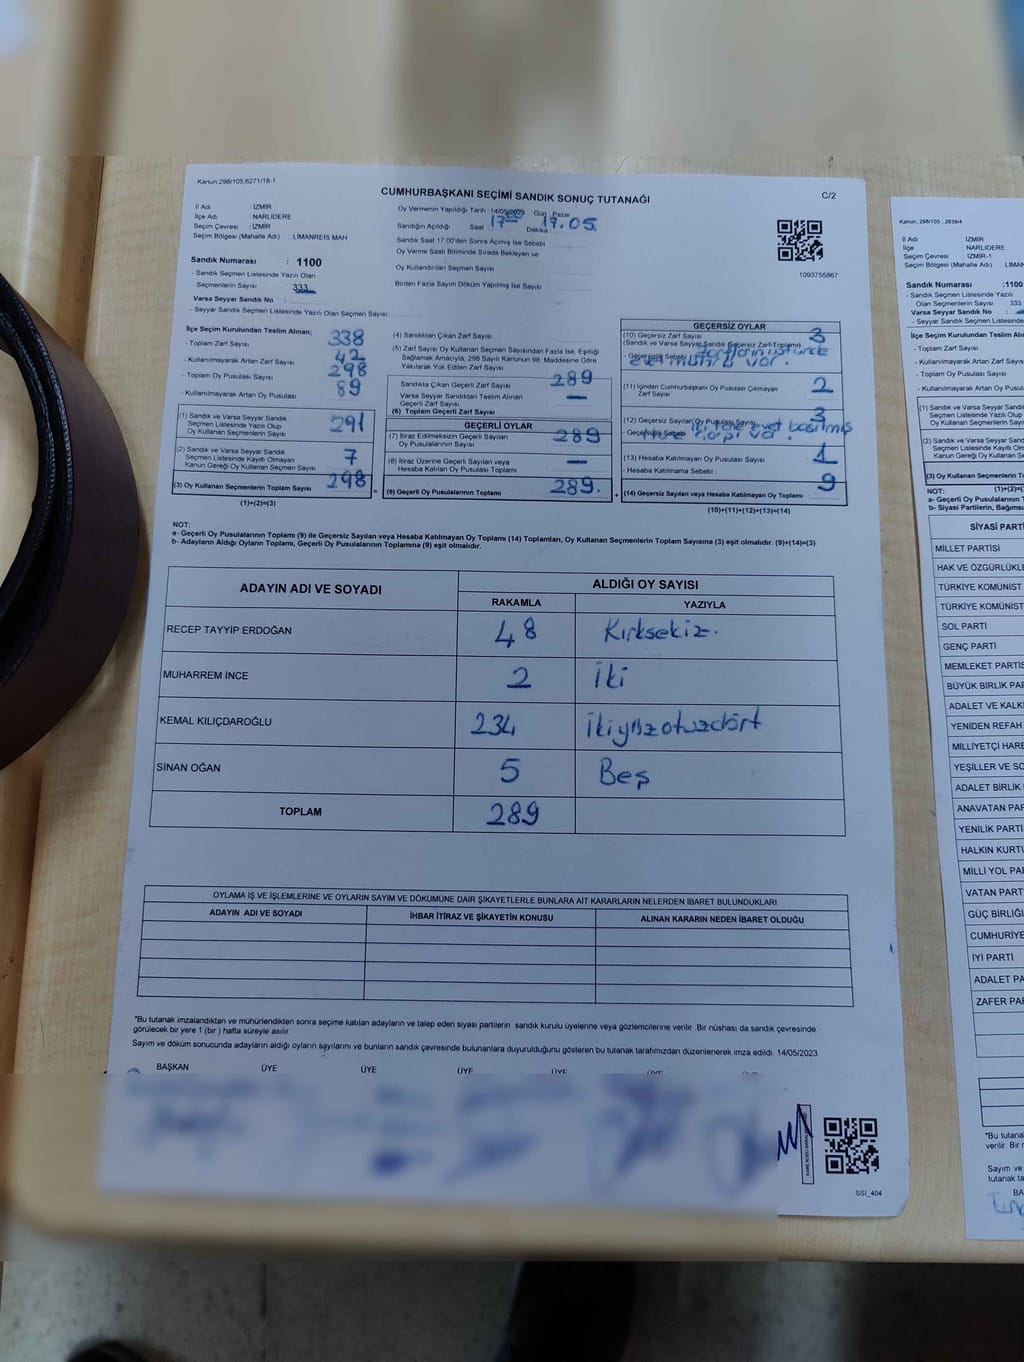 Kanun:298/105,6271/18-1
CUMHURBAŞKANI SEÇİMİ SANDIK SONUÇ TUTANAĞI
C/2
İl Adı : İZMİR
İlçe Adı : NARLIDERE
Seçim Çevresi : İZMİR
Seçim Bölgesi (Mahalle Adı) : LİMANREİS MAH
Sandık Numarası : 1100
- Sandık Seçmen Listesinde Yazılı Olan
Seçmenlerin Sayısı : 333
Varsa Seyyar Sandık No :
- Seyyar Sandık Seçmen Listesinde Yazılı Olan Seçmen Sayısı :
Oy Vermenin Yapıldığı Tarih :14/05/2023 Gün : Pazar
Sandığın Açıldığı Saat 17 Dakika 17.05.
Sandık Saat 17:00'den Sonra Açılmış İse Sebebi :
Oy Verme Saati Bitiminde Sırada Bekleyen ve
Oy Kullandırılan Seçmen Sayısı
Birden Fazla Sayım Döküm Yapılmış İse Sayısı :
1093755867
İlçe Seçim Kurulundan Teslim Alınan;
- Toplam Zarf Sayısı : 338
- Kullanılmayarak Artan Zarf Sayısı : 42
- Toplam Oy Pusulası Sayısı : 298
- Kullanılmayarak Artan Oy Pusulası : 89
(1) Sandık ve Varsa Seyyar Sandık
Seçmen Listesinde Yazılı Olup
Oy Kullanan Seçmenlerin Sayısı 291
(2) Sandık ve Varsa Seyyar Sandık
Seçmen Listesinde Kayıtlı Olmayan
Kanun Gereği Oy Kullanan Seçmen Sayısı 7
(3) Oy Kullanan Seçmenlerin Toplam Sayısı 298
(1)+(2)=(3)
=
(4) Sandıktan Çıkan Zarf Sayısı :
(5) Zarf Sayısı Oy Kullanan Seçmen Sayısından Fazla İse, Eşitliği
Sağlamak Amacıyla, 298 Sayılı Kanunun 98. Maddesine Göre
Yakılarak Yok Edilen Zarf Sayısı :
Sandıkta Çıkan Geçerli Zarf Sayısı : 289
Varsa Seyyar Sandıktan Teslim Alınan
Geçerli Zarf Sayısı : —
(6) Toplam Geçerli Zarf Sayısı :
GEÇERLİ OYLAR
(7) İtiraz Edilmeksizin Geçerli Sayılan
Oy Pusulalarının Sayısı : 289
(8) İtiraz Üzerine Geçerli Sayılan veya
Hesaba Katılan Oy Pusulası Toplamı : —
(9) Geçerli Oy Pusulalarının Toplamı : 289.
+
GEÇERSİZ OYLAR
(10) Geçersiz Zarf Sayısı : 3
(Sandık ve Varsa Seyyar Sandık Geçersiz Zarf Toplamı)
- Geçersizlik Sebebi : zarfların üstünde
evet mührü var.
(11) İçinden Cumhurbaşkanı Oy Pusulası Çıkmayan
Zarf Sayısı : 2
(12) Geçersiz Sayılan Oy Pusulası Sayısı : 3
- Geçersizlik Sebebi : evet basılmış
var.
(13) Hesaba Katılmayan Oy Pusulası Sayısı : 1
- Hesaba Katılmama Sebebi :
(14) Geçersiz Sayılan veya Hesaba Katılmayan Oy Toplamı : 9
(10)+(11)+(12)+(13)=(14)
NOT:
a- Geçerli Oy Pusulalarının Toplamı (9) ile Geçersiz Sayılan veya Hesaba Katılmayan Oy Toplamı (14) Toplamları, Oy Kullanan Seçmenlerin Toplam Sayısına (3) eşit olmalıdır. (9)+(14)=(3)
b- Adayların Aldığı Oyların Toplamı, Geçerli Oy Pusulalarının Toplamına (9) eşit olmalıdır.
ADAYIN ADI VE SOYADI
ALDIĞI OY SAYISI
RAKAMLA YAZIYLA
RECEP TAYYİP ERDOĞAN 48 Kırksekiz.
MUHARREM İNCE 2 İki
KEMAL KILIÇDAROĞLU 234 İkiyüzotuzdört
SİNAN OĞAN 5 Beş
TOPLAM 289
OYLAMA İŞ VE İŞLEMLERİNE VE OYLARIN SAYIM VE DÖKÜMÜNE DAİR ŞİKAYETLERLE BUNLARA AİT KARARLARIN NELERDEN İBARET BULUNDUKLARI
ADAYIN ADI VE SOYADI İHBAR İTİRAZ VE ŞİKAYETİN KONUSU ALINAN KARARIN NEDEN İBARET OLDUĞU
*Bu tutanak imzalandıktan ve mühürlendikten sonra seçime katılan adayların ve talep eden siyasi partilerin sandık kurulu üyelerine veya gözlemcilerine verilir. Bir nüshası da sandık çevresinde
görülecek bir yere 1 (bir ) hafta süreyle asılır.
Sayım ve döküm sonucunda adayların aldığı oyların sayılarını ve bunların sandık çevresinde bulunanlara duyurulduğunu gösteren bu tutanak tarafımızdan düzenlenerek imza edildi. 14/05/2023
BAŞKAN ÜYE ÜYE ÜYE ÜYE ÜYE ÜYE
SSİ_404
Kanun: 298/105 , 2839/4
İl Adı : İZMİR
İlçe : NARLIDERE
Seçim Çevresi : İZMİR-1
Seçim Bölgesi (Mahalle Adı) : LİMAN
Sandık Numarası :1100
- Sandık Seçmen Listesinde Yazılı
Olan Seçmenlerin Sayısı : 333
Varsa Seyyar Sandık No :
- Seyyar Sandık Seçmen Listesinde
İlçe Seçim Kurulundan Teslim Alı
- Toplam Zarf Sayısı
- Kullanılmayarak Artan Zarf Sayısı
- Toplam Oy Pusulası Sayısı
- Kullanılmayarak Artan Oy Pusul
(1) Sandık ve Varsa Seyyar Sandık
Seçmen Listesinde Yazılı Olup
Oy Kullanan Seçmenlerin Sayısı
(2) Sandık ve Varsa Seyyar Sandık
Seçmen Listesinde Kayıtlı Olm
Kanun Gereği Oy Kullanan Seç
(3) Oy Kullanan Seçmenlerin To
(1)+(2)=(
NOT:
a- Geçerli Oy Pusulalarının T
b- Siyasi Partilerin, Bağıms
SİYASİ PARTİ
MİLLET PARTİSİ
HAK VE ÖZGÜRLÜKLE
TÜRKİYE KOMÜNİST
TÜRKİYE KOMÜNİST
SOL PARTİ
GENÇ PARTİ
MEMLEKET PARTİS
BÜYÜK BİRLİK PAR
ADALET VE KALK
YENİDEN REFAH
MİLLİYETÇİ HARE
YEŞİLLER VE SO
ADALET BİRLİK
ANAVATAN PAR
YENİLİK PARTİ
HALKIN KURTU
MİLLİ YOL PA
VATAN PART
GÜÇ BİRLİĞİ
CUMHURİYE
İYİ PARTİ
ADALET PA
ZAFER PAR
*Bu tutana
verilir. Bir n
Sayım ve
tutanak ta
BA